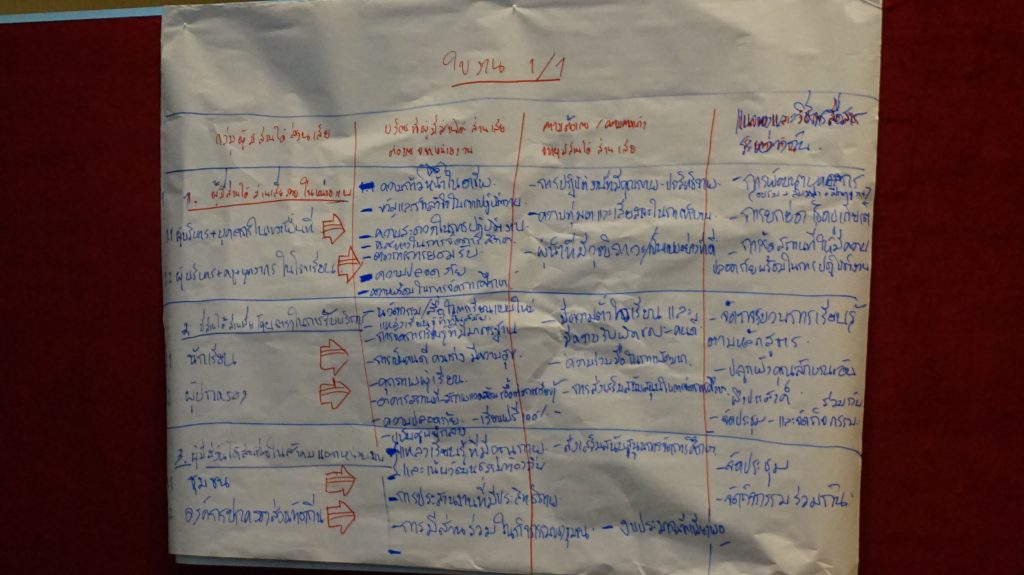 ใบงาน 1/1
กลุ่มผู้มีส่วนได้ส่วนเสีย
บริการที่ผู้มีส่วนได้ส่วนเสีย
ต้องการจากหน่วยงาน
ความต้องการ /
จากผู้มีส่วนได้ส่วนเสีย
แนวทางและวิธีการสื่อสาร
ระหว่างกัน
1. ผู้มีส่วนได้ส่วนเสียภายในหน่วยงาน
1.1 ผู้บริหาร+บุคลากรในเขตพื้นที่
1.2 ผู้บริหาร+ครู+บุคลากรในโรงเรียน
- ความก้าวหน้าในอาชีพ
- ขวัญและกำลังใจในการปฏิบัติงาน
- ความสะดวกในการปฏิบัติงาน
- ต้องการการยอมรับ
- ความปลอดภัย
- ความพร้อมในการจัดการศึกษา
- การปฏิบัติงานที่มีคุณภาพ-ประสิทธิภาพ
- ความทุ่มเทและเสียสละในการทำงาน
- การพัฒนาบุคลากร
- การยกย่อง เชิดชูเกียรติ
- การจัดสถานที่ให้มีความ
ปลอดภัยพร้อมในการปฏิบัติงาน
2. ผู้มีส่วนได้ส่วนเสียโดยตรงในการรับบริการ
นักเรียน
ผู้ปกครอง
- นวัตกรรม/สื่อในการเรียนแบบใหม่
- การเป็นคนดี คนเก่ง มีความสุข
- คุณภาพผู้เรียน
- ความปลอดภัย - เรียนฟรี 100%
- มีความตั้งใจเรียน และ
มีความรับผิดชอบต่อหน้าที่
- ความร่วมมือในการพัฒนา
- จัดกระบวนการเรียนรู้
ตามหลักสูตร
- ปลูกฝังคุณลักษณะอัน
พึงประสงค์ ร่วมกัน
- จัดประชุม - และจัดกิจกรรม
3. ผู้มีส่วนได้ส่วนเสียในสังคมนอกหน่วยงาน
ชุมชน
องค์กรปกครองส่วนท้องถิ่น
- แหล่งเรียนรู้ที่มีคุณภาพ
และเน้นวัฒนธรรมท้องถิ่น
- การประสานงานที่มีประสิทธิภาพ
- การมีส่วนร่วมในกิจกรรมของชุมชน
- ส่งเสริมสนับสนุนการจัดการศึกษา
- งบประมาณที่เพียงพอ
- จัดประชุม
- จัดกิจกรรมร่วมกัน